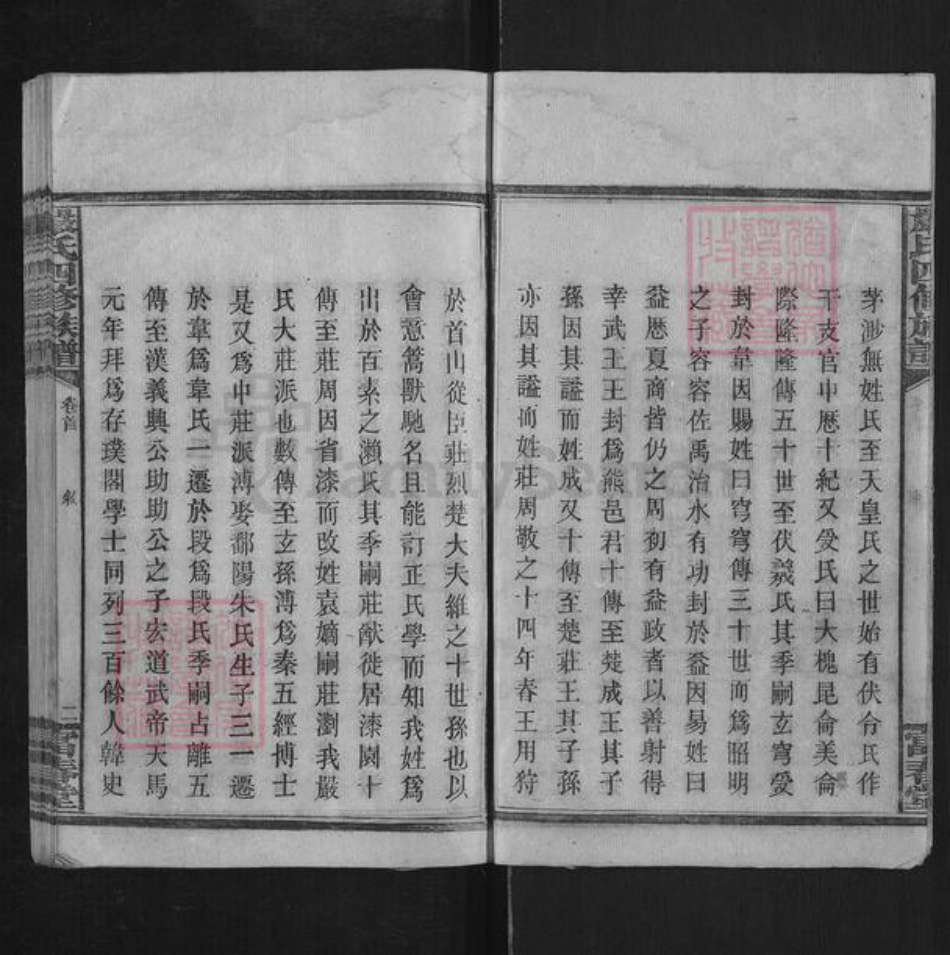 茅渺無姓氏至天皇氏之世始有伏兮氏作
干支官中歷十紀又爰氏曰大槐昆侖美侖
際隆隆傳五十世至伏羲氏其季嗣玄穹爰
封於韋因賜姓曰穹穹傳三十世而為昭明
之子容容佐禹治水有功封於益因易姓曰
益歷夏商皆仍之周初有益政者以善射得
幸武王王封爲熊邑君十傳至楚成王其子
孫因其謚而姓成又十傳至楚莊王其子孫
亦因其謚而姓莊周敬之十四年春王用狩
於首山從臣莊烈楚大夫維之十世孫也以
會意篙獸馳名且能訂正氏學而知我姓爲
出於百素之瀨氏其季嗣莊猷徙居漆園十
傳至莊周因省漆而改姓袁嫡嗣莊瀏我嚴
氏大莊派也數傳至玄孫溥爲秦五經博士
是又爲中莊派溥娶鄱陽朱氏生子三一遷
於韋爲韋氏一遷於段爲段氏季嗣占離五
傳至漢義興公助助公之子宏道武帝天馬
元年拜爲存璞閣學士同列三百餘人韓史
嚴氏四修族譜
卷首
敘
二
富春堂
嚴氏四修族譜
富春堂